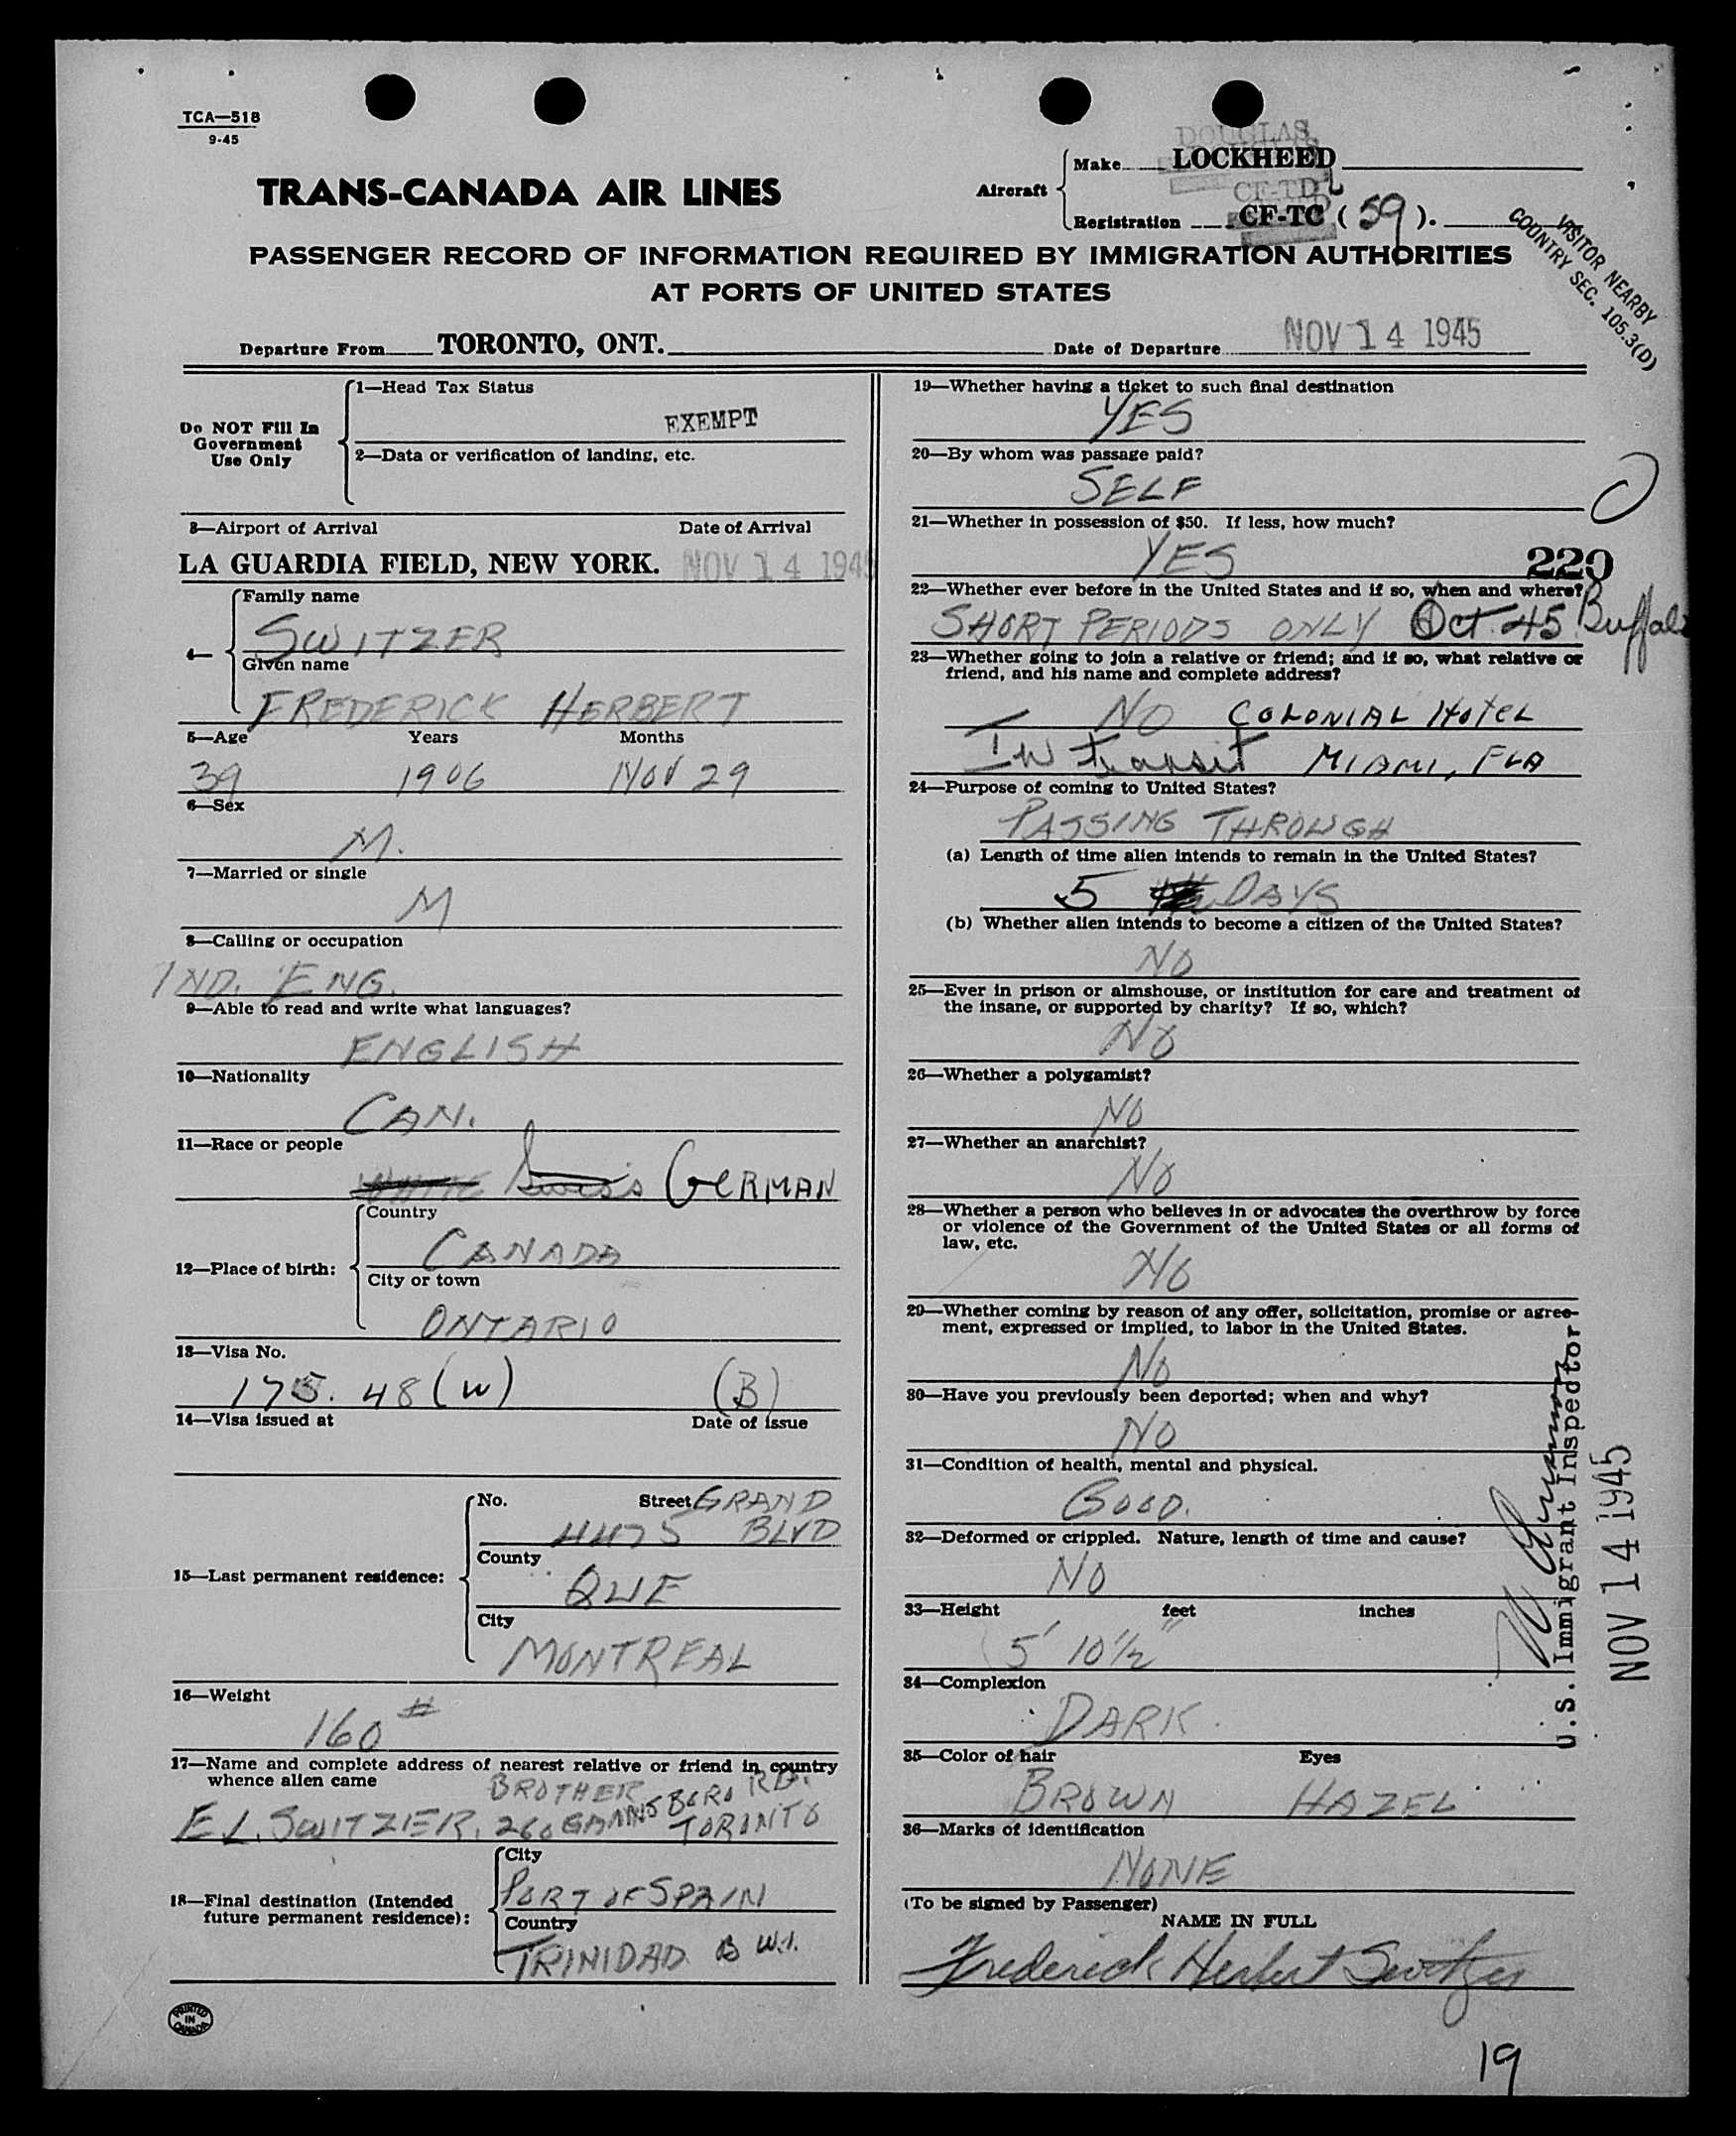 TCA—518
9-45
TRANS-CANADA AIR LINES
Aircraft
Make
DOUGLAS
LOCKHEED
CF-TD
Registration CF-TC ( 59 ).
VISITOR NEARBY
COUNTRY SEC. 105.3(D)
PASSENGER RECORD OF INFORMATION REQUIRED BY IMMIGRATION AUTHORITIES
AT PORTS OF UNITED STATES
Departure From TORONTO, ONT. Date of Departure NOV 14 1945
Do NOT Fill In
Government
Use Only
1—Head Tax Status
EXEMPT
2—Data or verification of landing, etc.
3—Airport of Arrival Date of Arrival
LA GUARDIA FIELD, NEW YORK. NOV 14 1945
4—
Family name
SWITZER
Given name
FREDERICK HERBERT
5—Age Years Months
39 1906 NOV 29
6—Sex
M.
7—Married or single
M
8—Calling or occupation
IND. ENG.
9—Able to read and write what languages?
ENGLISH
10—Nationality
CAN.
11—Race or people
WHITE Swiss GERMAN
12—Place of birth:
Country
CANADA
City or town
ONTARIO
13—Visa No.
175. 48 (W) (B)
14—Visa issued at Date of issue
15—Last permanent residence:
No. Street GRAND
4475 BLVD
County
QUE
City
MONTREAL
16—Weight
160 #
17—Name and complete address of nearest relative or friend in country
whence alien came
BROTHER RD.
E.L. SWITZER, 260 TORONTO
18—Final destination (Intended
future permanent residence):
City
PORT OF SPAIN
Country
TRINIDAD B W.I.
PRINTED
IN
CANADA
19—Whether having a ticket to such final destination
YES
20—By whom was passage paid?
SELF
21—Whether in possession of $50. If less, how much?
YES
220
22—Whether ever before in the United States and if so, when and where?
SHORT PERIODS ONLY Oct 45 Buffalo
23—Whether going to join a relative or friend; and if so, what relative or
friend, and his name and complete address?
— NO COLONIAL HOTEL
In transit MIAMI, FLA
24—Purpose of coming to United States?
PASSING THROUGH
(a) Length of time alien intends to remain in the United States?
5 DAYS
(b) Whether alien intends to become a citizen of the United States?
NO
25—Ever in prison or almshouse, or institution for care and treatment of
the insane, or supported by charity? If so, which?
NO
26—Whether a polygamist?
NO
27—Whether an anarchist?
NO
28—Whether a person who believes in or advocates the overthrow by force
or violence of the Government of the United States or all forms of
law, etc.
NO
29—Whether coming by reason of any offer, solicitation, promise or agree-
ment, expressed or implied, to labor in the United States.
NO
30—Have you previously been deported; when and why?
NO
31—Condition of health, mental and physical.
GOOD.
32—Deformed or crippled. Nature, length of time and cause?
NO
33—Height feet inches
5' 10½"
34—Complexion
DARK.
35—Color of hair Eyes
BROWN HAZEL
36—Marks of identification
NONE
(To be signed by Passenger)
NAME IN FULL
Frederick Herbert Switzer
U.S. Immigrant Inspector
NOV 14 1945
19